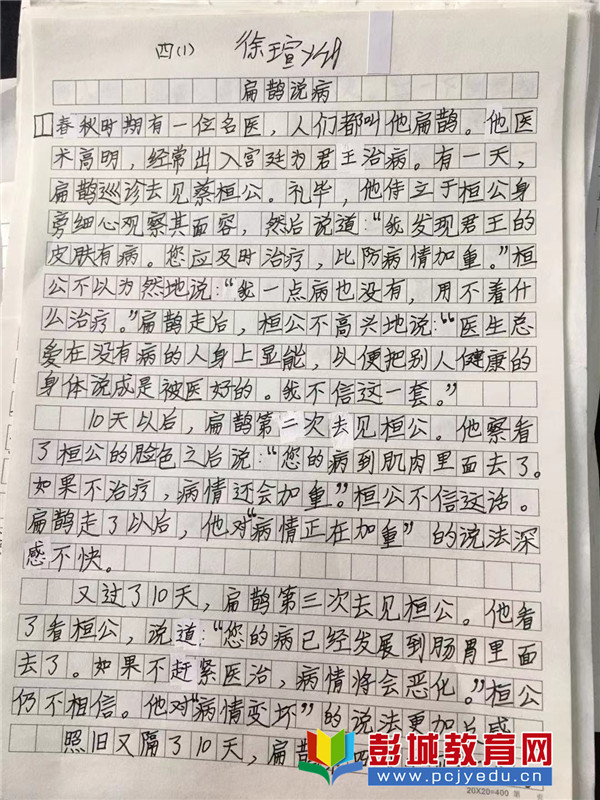 四(1) 徐瑄
扁鹊说病
春秋时期有一位名医，人们都叫他扁鹊。他医
术高明，经常出入宫廷为君王治病。有一天，
扁鹊巡诊去见蔡桓公。礼毕，他侍立于桓公身
旁细心观察其面容，然后说道：“我发现君王的
皮肤有病。您应及时治疗，比防病情加重。”桓
公不以为然地说：“我一点病也没有，用不着什
么治疗。”扁鹊走后，桓公不高兴地说：“医生总
爱在没有病的人身上显能，以便把别人健康的
身体说成是被医好的。我不信这一套。”
10天以后，扁鹊第二次去见桓公。他察看
了桓公的脸色之后说：“您的病到肌肉里面去了。
如果不治疗，病情还会加重。”桓公不信这话。
扁鹊走了以后，他对“病情正在加重”的说法深
感不快。
又过了10天，扁鹊第三次去见桓公。他看
了看桓公，说道：“您的病已经发展到肠胃里面
去了。如果不赶紧医治，病情将会恶化。”桓公
仍不相信。他对“病情变坏”的说法更加反感
照旧又隔了10天，扁鹊第四
彭城教育网
www.pcjyedu.cn
20X20=400 第